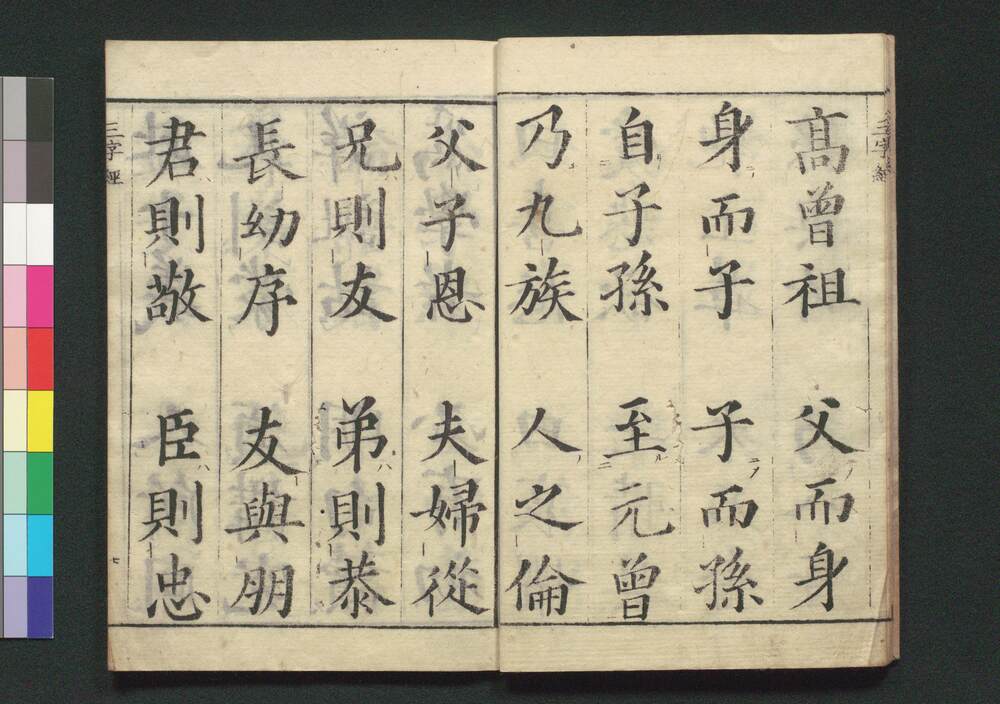 高曾祖 父而身
身而子 子而孫
自子孫 至元曾
乃九族 人之倫
父子恩 夫婦從
兄則友 弟則恭
長幼序 友與朋
君則敬 臣則忠
三字經
七